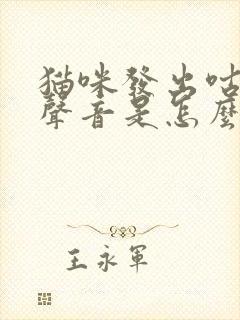 猫咪發出咕
聲音是怎麼
王永軍